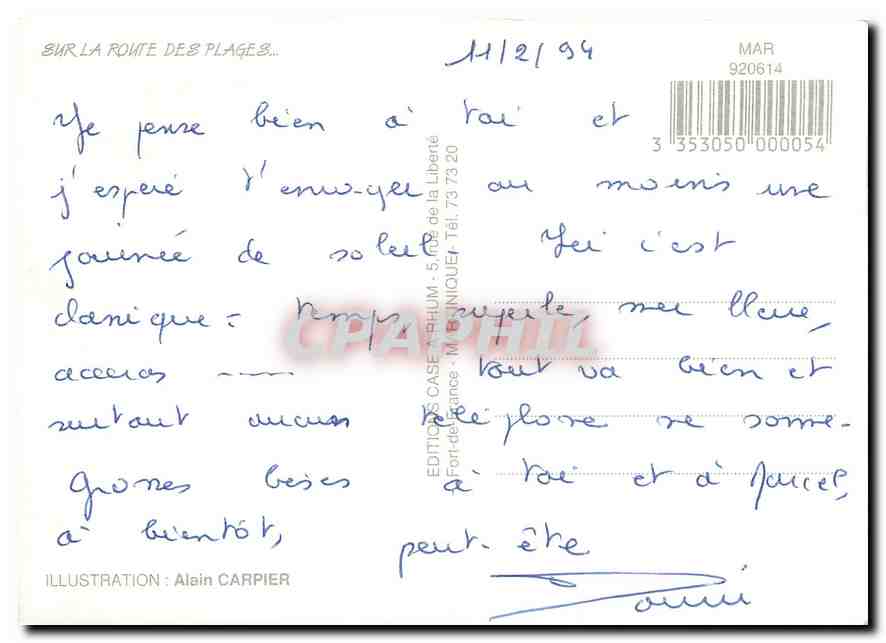 SUR LA ROUTE DES PLAGES...
11/2/94
MAR
920614
3 353050 000054
Je pense bien à toi et
j'espère t'envoyer au moins une
journée de soleil. Ici c'est
classique = temps superbe, mer bleue,
accras ---- tout va bien et
surtout aucun téléphone ne sonne.
Grosses bises à toi et à Marcel,
à bientôt, peut-être
EDITIONS CASE A RHUM - 5, rue de la Liberté
Fort-de-France - MARTINIQUE - Tél. 73 73 20
CPAPHIL
ILLUSTRATION : Alain CARPIER